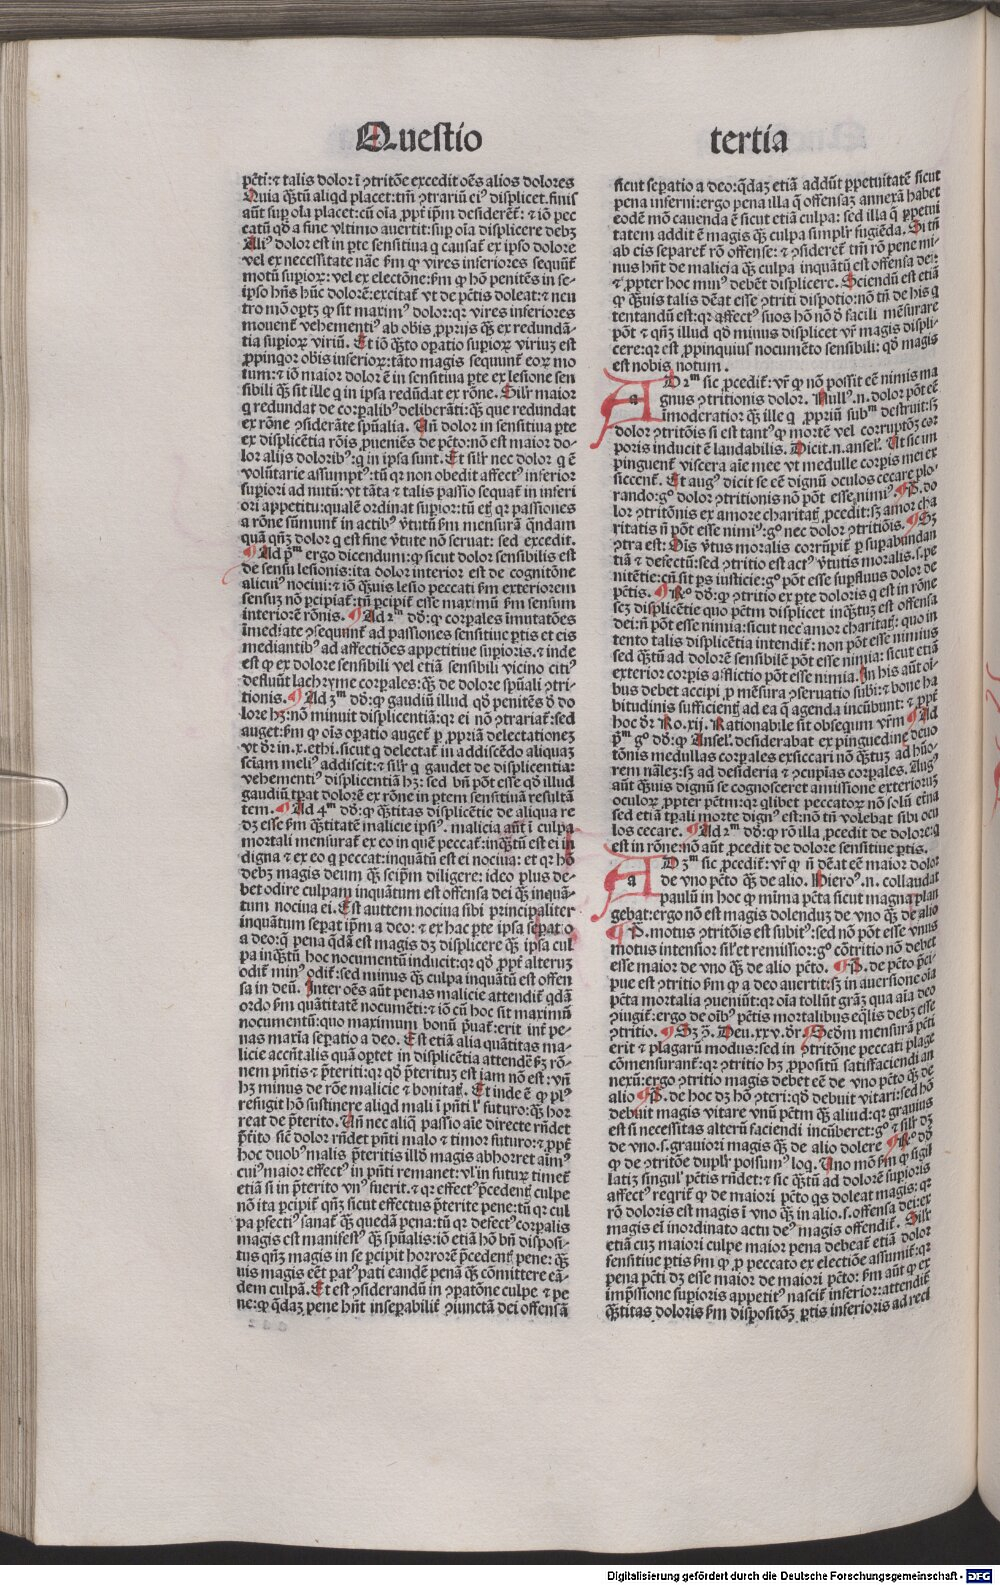 Questio tertia
pctī:⁊ talis dolor ī ↄtritōe excedit oēs alios dolores
Quia qȝtū aliqd placet:tm̄ ↄtrariū eiꝰ displicet. finis
aūt suꝑ oīa placet:cū oīa ꝓpt ipm desiderēt: ⁊ iō pec
catū qd̄ a fine vltimo auertit:suꝑ oīa displicere debȝ
Aliꝰ dolor est in pte sensitiua q causat ex ipso dolore
vel ex necessitate nāe ẜm ꝙ vires inferiores sequūt
motū supioꝝ: vel ex electōne:ẜm ꝙ hō penitēs in se-
ipso hn̄s hūc dolorē:excitat vt de pctis doleat:⁊ neu
tro mō optȝ ꝙ sit maximꝰ dolor:qꝛ vires inferiores
mouent vehementiꝰ ab obis ꝓprijs qȝ ex redundā-
tia supioꝝ viriū. Et iō qȝto opatio supioꝝ viriuȝ est
ꝓpinqoꝛ obis inferioꝝ:tāto magis sequunt eoꝝ mo
tum:⁊ iō maior dolor ē in sensitiua pte ex lesione sen
sibili qȝ sit ille q in ipsa redūdat ex rōne. Silr maior
q redundat de corpalibꝰ deliberāti:qȝ que redundat
ex rōne ↄsiderāte spūalia. Un̄ dolor in sensitiua pte
ex displicētia rōis ꝓueniēs de pctō:nō est maior do-
lor alijs doloribꝰ:q in ipsa sunt. Et silr nec dolor q ē
volūtarie assumptꝰ:tū qꝛ non obedit affectꝰ inferior
supiori ad nutū: vt tāta ⁊ talis passio sequat in inferi
ori appetitu:qualē ordinat supior:tū etī qꝛ passiones
a rōne sūmunt in actibꝰ v̄tutū ẜm mensurā qndam
quā qn̄ȝ dolor q est sine v̄tute nō seruat: sed excedit.
¶ Ad pm ergo dicendum:ꝙ sicut dolor sensibilis est
de sensu lesionis:ita dolor interior est de cognitōne
alicuiꝰ nociui:⁊ iō qȝuis lesio peccati ẜm exteriorem
sensuȝ nō pcipiat:tn̄ pcipit esse maximū ẜm sensum
interiorē rōnis. ¶ Ad 2m dd̄:ꝙ corpales īmutatōes
īmediate ↄsequunt ad passiones sensitiue ptis et eis
mediantibꝰ ad affectiōes appetitiue supioris.⁊ inde
est ꝙ ex dolore sensibili vel etiā sensibili vicino citiꝰ
defluūt lachryme corpales:qȝ de dolore spūali ↄtri-
tionis. ¶ Ad 3m dd̄:ꝙ gaudiū illud qd̄ penitēs d̄ do
lore hȝ:nō minuit displicentiā:qꝛ ei nō ↄtrariat:sed
auget:ẜm ꝙ oīs opatio auget p ꝓpriā delectationeȝ
vt dr in.x.ethi.sicut q delectat in addiscēdo aliquaȝ
sciam meliꝰ addiscit:⁊ silr q gaudet de displicentia:
vehementiꝰ displicentiā hȝ: sed bn̄ pōt esse qd̄ illud
gaudiū tpat dolorē ex rōne in ptem sensitiuā resultā
tem. ¶ Ad 4m dd̄:ꝙ qȝtitas displicētie de aliqua re
dȝ esse ẜm qȝtitatē malicie ipsiꝰ. malicia aūt ī culpa
mortali mensurat ex eo in quē peccat:inqȝtū est ei in
digna ⁊ ex eo q peccat:inquātū est ei nociua: et qꝛ hō
debȝ magis deum qȝ seipm diligere: ideo plus de-
bet odire culpam inquātum est offensa dei qȝ inquā-
tum nociua ei. Est auttem nociua sibi principaliter
inquātum sepat ipm a deo: ⁊ ex hac pte ipsa sepatio
a deo:q pena qdā est magis dȝ displicere qȝ ipsa cul
pa inqȝtū hoc nocumentū inducit:qꝛ qd̄ ꝓpt alteruȝ
odit minꝰ odit:sed minus qȝ culpa inquātū est offen
sa in deū. Inter oēs aūt penas malicie attendit qdā
ordo ẜm quātitatē nocumēti:⁊ iō cū hoc sit maximū
nocumentū:quo maximum bonū p̄uat:erit int pe-
nas maria sepatio a deo. Est etiā alia quātitas ma-
licie accn̄talis quā optet in displicētia attendē ẜȝ rō-
nem pn̄tis ⁊ p̄teriti:qꝛ qd̄ p̄terituȝ est iam nō est: vn̄
hȝ minus de rōne malicie ⁊ bonitatis. Et inde ē ꝙ plꝰ
refugit hō sustinere aliqd mali ī pn̄ti ł futuro:qȝ hor
reat de p̄terito. Un̄ nec aliq passio aīe directe rn̄det
p̄tito sic dolor rn̄det pn̄ti malo ⁊ timor futuro:⁊ ꝓpt
hoc duobꝰ malis p̄teritis illd̄ magis abhorret aīmꝰ
cuiꝰ maior effectꝰ in pn̄ti remanet: vl in futuꝝ timet
etiā si in p̄terito vnꝰ fuerit.⁊ qꝛ effectꝰ p̄cedentis culpe
nō ita pcipit qn̄ȝ sicut effectus p̄terite pene:tū qꝛ cul
pa pfectiꝰ sanat qȝ quedā pena:tū qꝛ defectꝰ corpalis
magis est manifestꝰ qȝ spūalis:iō etiā hō bn̄ disposi-
tus qn̄ȝ magis in se pcipit horrorē p̄cedentis pene: qȝ
uis magis eēt patꝰ pati eandē penā qȝ cōmittere eā-
dem culpā. Et est ↄsiderandū in ↄpatōne culpe ⁊ pe
ne:ꝙ qdaȝ pene hn̄t insepabilit ↄiunctā dei offensā
sicut sepatio a deo: qdaȝ etiā addūt ppetuitatē sicut
pena inferni:ergo pena illa q offensaȝ annexā habet
eodē mō cauenda ē sicut etiā culpa: sed illa q ppetui
tatem addit ē magis qȝ culpa simplr fugiēda. Si tn̄
ab eis separet rō offense: ⁊ ↄsideret tm̄ rō pene mi-
nus hn̄t de malicia qȝ culpa inquātū est offensa dei:
⁊ ꝓpter hoc minꝰ debēt displicere. Sciendū est etiā
ꝙ qȝuis talis dēat esse ↄtriti dispotio:nō tn̄ de his q
tentandū est:qꝛ affectꝰ suos hō nō d̄ facili mēsurare
pōt ⁊ qn̄ȝ illud qd̄ minus displicet vr̄ magis displi
cere:qꝛ est ꝓpinquiuȝ nocumēto sensibili: qd̄ magis
est nobis notum.
AD 2m sic ꝓcedit: vr̄ ꝙ nō possit eē nimis ma
gnus ↄtritionis dolor. Nullꝰ.n. dolor pōt eē
īmoderatior qȝ ille q ꝓpriū subm destruit:sȝ
dolor ↄtritōis si est tantꝰ ꝙ mortē vel corruptōȝ cor
poris inducit ē laudabilis. Dicit.n.ansel. Ut sic im
pinguent viscera aīe mee vt medulle corpis mei ex
siccent. Et augꝰ dicit se eē dignū oculos cecare plo-
rando:gº dolor ↄtritionis nō pōt esse nimiꝰ. ¶P. do
lor ↄtritōnis ex amore charitatis ꝓcedit:sȝ amor cha
ritatis n̄ pōt esse nimiꝰ:gº nec dolor ↄtritiōis. ¶Sȝ
ↄtra est: Ois v̄tus moralis corrūpit p supabundan
tiā ⁊ defectū:sed ↄtritio est actꝰ v̄tutis moralis.s.pe
nitētie:cū sit ps iusticie:gº pōt esse supfluus dolor de
pctis. ¶ Rº dd̄:ꝙ ↄtritio ex pte doloris q est in rōne
scȝ displicētie quo pctm displicet inqȝtuȝ est offensa
dei:n̄ pōt esse nimia:sicut nec amor charitatis: quo in
tento talis displicētia intendit: non pōt esse nimius
sed qȝtū ad dolorē sensibilē pōt esse nimia: sicut etiā
exterior corpis afflictio pōt esse nimia. In his aūt oī
bus debet accipi ꝓ mēsura ↄseruatio subi:⁊ bone ha
bitudinis sufficientis ad ea q agenda incūbunt: ⁊ ꝓpt
hoc dr Ro.xij. Rationabile sit obsequm vr̄m ¶ Ad
pm gº dd̄:ꝙ Ansel. desiderabat ex pinguedine deuo
tōnis medullas corpales exsiccari nō qȝtuȝ ad hūo-
rem nālez:sȝ ad desideria ⁊ ↄcupias corpales. Augꝰ
aūt qȝuis dignū se cognosceret amissione exterioruȝ
oculoꝝ ꝓpter pctm:qꝛ qlibet peccatoꝛ nō solū etna
sed etiā tpali morte dignꝰ est:nō tn̄ volebat sibi ocu
los cecare. ¶ Ad 2m dd̄:ꝙ rō illa ꝓcedit de dolore:q
est in rōne:nō aūt ꝓcedit de dolore sensitiue ptis.
AD 3m sic ꝓcedit: vr̄ ꝙ n̄ dēat eē maior dolor
de vno pctō qȝ de alio. Hieroꝰ.n. collaudat
paulū in hoc ꝙ mima pctā sicut magna plan
gebat:ergo nō est magis dolenduȝ de vno qȝ de alio
¶ P. motus ↄtritōis est subitꝰ:sed nō pōt esse vnus
motus intensior silr et remissior:gº cōtritio nō debet
esse maior de vno qȝ de alio pctō. ¶P. de pctō p̄ci
pue est ↄtritio ẜm ꝙ a deo auertit:sȝ in auersione oīa
pctā mortalia ↄueniūt:qꝛ oīa tollūt grāȝ qua aīa deo
ↄiungit:ergo de oībꝰ pctis mortalibus eqlis debȝ esse
ↄtritio. ¶ Sȝ ↄ. Deu.xxv.dr ¶ Scdm mensurā pcti
erit ⁊ plagarū modus:sed in ↄtritōne peccati plage
cōmensurant:qꝛ ↄtritio hȝ ꝓpositū satisfaciendi an
nexū:ergo ↄtritio magis debet eē de vno pctō qȝ de
alio ¶P. de hoc dȝ hō ↄteri:qd̄ debuit vitari:sed hō
debuit magis vitare vnū pctm qȝ aliud:qꝛ grauius
est si necessitas alterū faciendi incūberet:gº ⁊ silr dȝ
de vno.s.grauiori magis qȝ de alio dolere ¶ Rº dd̄
ꝙ de ↄtritōne duplr possumꝰ loq. Uno mō ẜm ꝙ sigil
latiȝ singulꝰ pctis rn̄det:⁊ sic qȝtū ad dolorē supioris
affectꝰ reqrit ꝙ de maiori pctō qs doleat magis: qꝛ
rō doloris est magis ī vno qȝ in alio.s.offensa dei:ex
magis ei inordinato actu deꝰ magis offendit. Silr
etiā cuȝ maiori culpe maior pena debeat etiā dolor
sensitiue ptis ẜm ꝙ ꝓ peccato ex electiōe assumit:qꝛ
pena pcti dȝ esse maior de maiori pctō: ẜm aūt ꝙ ex
imp̄ssione supioris appetitꝰ nascit inferior:attendit
qȝtitas doloris ẜm dispositōȝ ptis inferioris ad reci
Digitalisierung gefördert durch die Deutsche Forschungsgemeinschaft - DFG